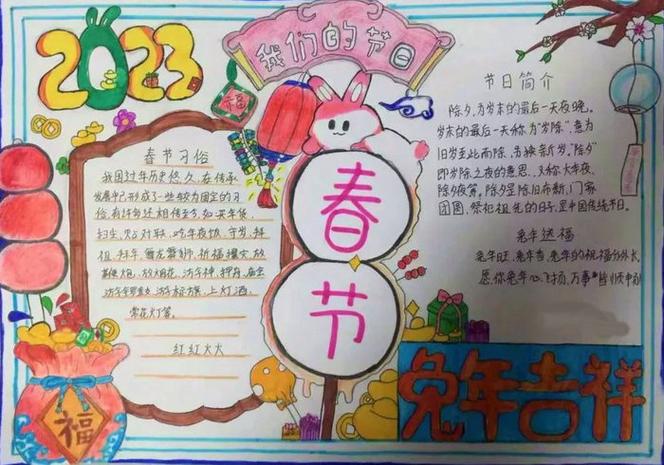 2023
我们的节日
福
春节
春节习俗
我国过年历史悠久,在传承
发展中已形成了一些较为固定的习
俗,有许多还相传至今,如买年货,
扫尘,贴对联,吃年夜饭,守岁,拜
祖,拜年,舞龙舞狮,祈福攘灾,放
鞭炮,放烟花,游年神,押舟,庙会
上灯酒,
赏花灯等。
红红火火
节日简介
除夕,为岁末的最后一天夜晚。
岁末的最后一天称为"岁除",意为
旧岁至此而除,另换新岁。除夕
即岁除之夜的意思,又称大年夜、
除夕夜等,除夕是除旧布新、
团圆、祭祀祖先的日子,是中国传统节日。
兔年送福
兔年旺,兔年吉,兔年的祝福分外长,
愿你兔年心飞扬,万事皆顺申
福
兔年吉祥